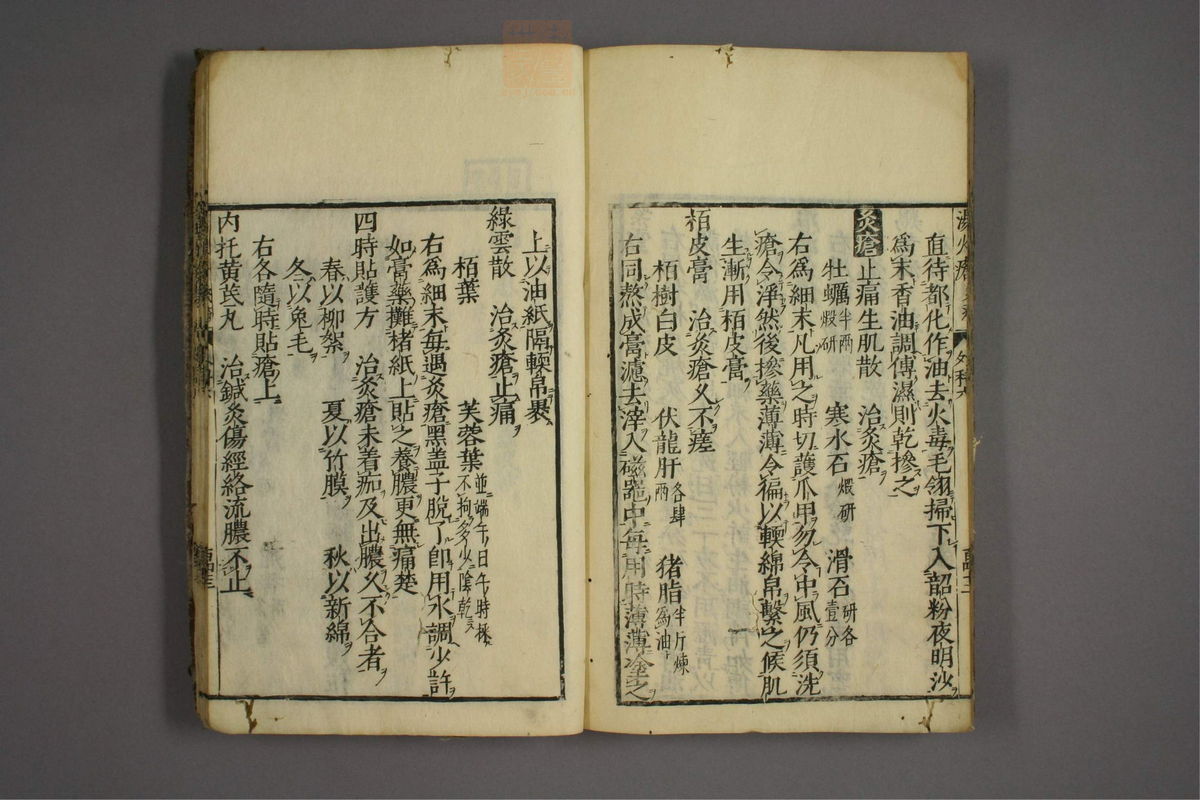 直待都化作油去火毒毛翎掃下入韶粉夜明沙
爲末香油調傅濕則乾摻之
灸瘡止痛生肌散 治灸瘡
牡蠣半兩煅研 寒水石煅研 滑石研各壹分
右爲細末凡用之時切護爪甲勿令中風仍須洗
瘡令淨然後摻藥薄薄令徧以輭綿帛繫之候肌
生漸用栢皮膏
栢皮膏 治灸瘡久不瘥
栢樹白皮 伏龍肝各肆兩 猪脂半斤煉爲油
右同熬成膏濾去滓入磁器中每用時薄薄塗之
上以油紙隔輭帛裹
綠雲散 治灸瘡止痛
栢葉 芙蓉葉並端午日午時採不拘多少陰乾
右爲細末每遇灸瘡黑盖子脫了卽用水調少許
如膏藥攤楮紙上貼之養膿更無痛楚
四時貼護方 治灸瘡未着痂及出膿久不合者
春以柳絮 夏以竹膜 秋以新綿
冬以兔毛
右各隨時貼瘡上
內托黄芪丸 治鍼灸傷經絡流膿不止